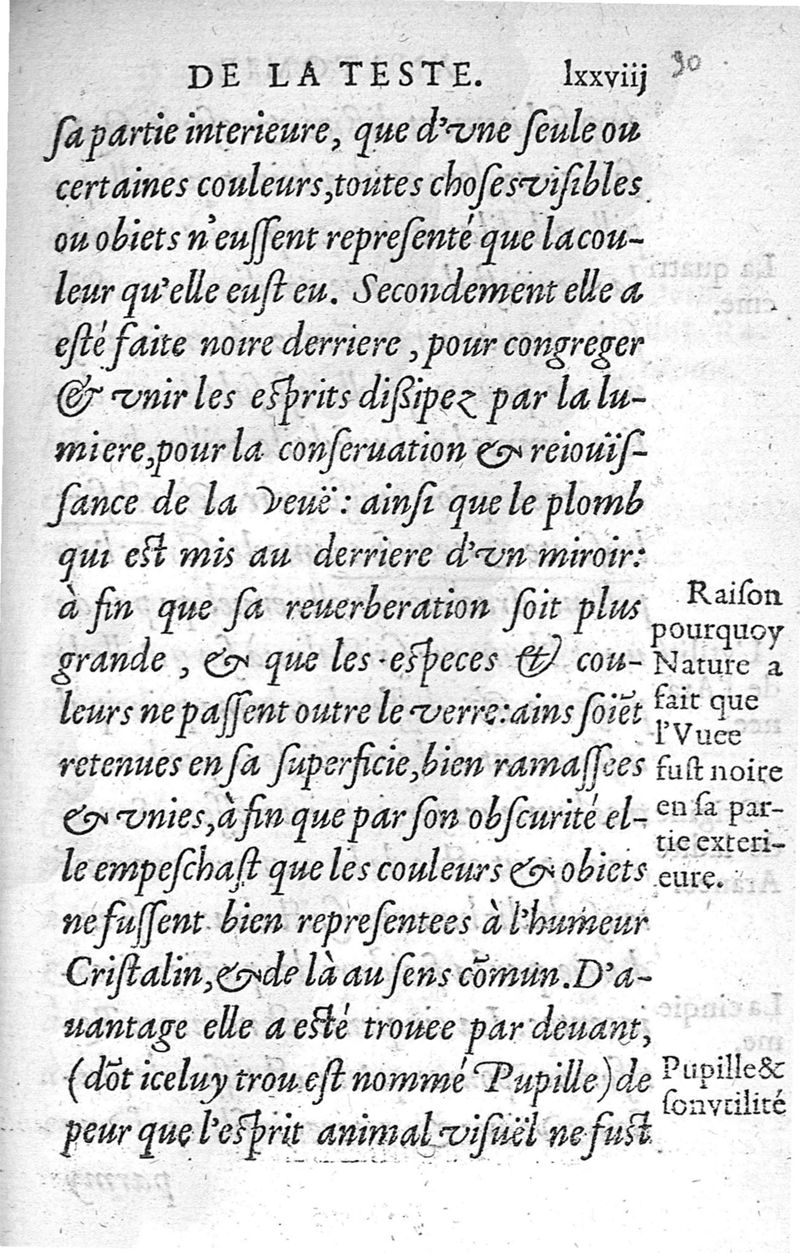 DE LA TESTE. lxxviij
90
ſa partie interieure, que d'vne ſeule ou
certaines couleurs, toutes choſes viſibles
ou obiets n'euſſent repreſenté que la cou-
leur qu'elle euſt eu. Secondement elle a
eſté faite noire derriere, pour congreger
& vnir les eſprits dißipez par la lu-
miere, pour la conſeruation & reiouïſ-
ſance de la Veuë: ainſi que le plomb
qui eſt mis au derriere d'vn miroir:
à fin que ſa reuerberation ſoit plus
grande, & que les eſpeces & cou-
leurs ne paſſent outre le verre: ains ſoiẽt
retenues en ſa ſuperficie, bien ramaſſees
& vnies, à fin que par ſon obſcurité el-
le empeſchaſt que les couleurs & obiets
ne fuſſent bien repreſentees à l'humeur
Criſtalin, & de là au ſens cõmun. D'a-
uantage elle a eſté trouee par deuant,
(dõt iceluy trou eſt nommé Pupille) de
peur que l'eſprit animal viſuël ne fuſt
Raiſon
pourquoy
Nature a
fait que
l'Vuee
fuſt noire
en ſa par-
tie exteri-
eure.
Pupille &
ſon vtilité